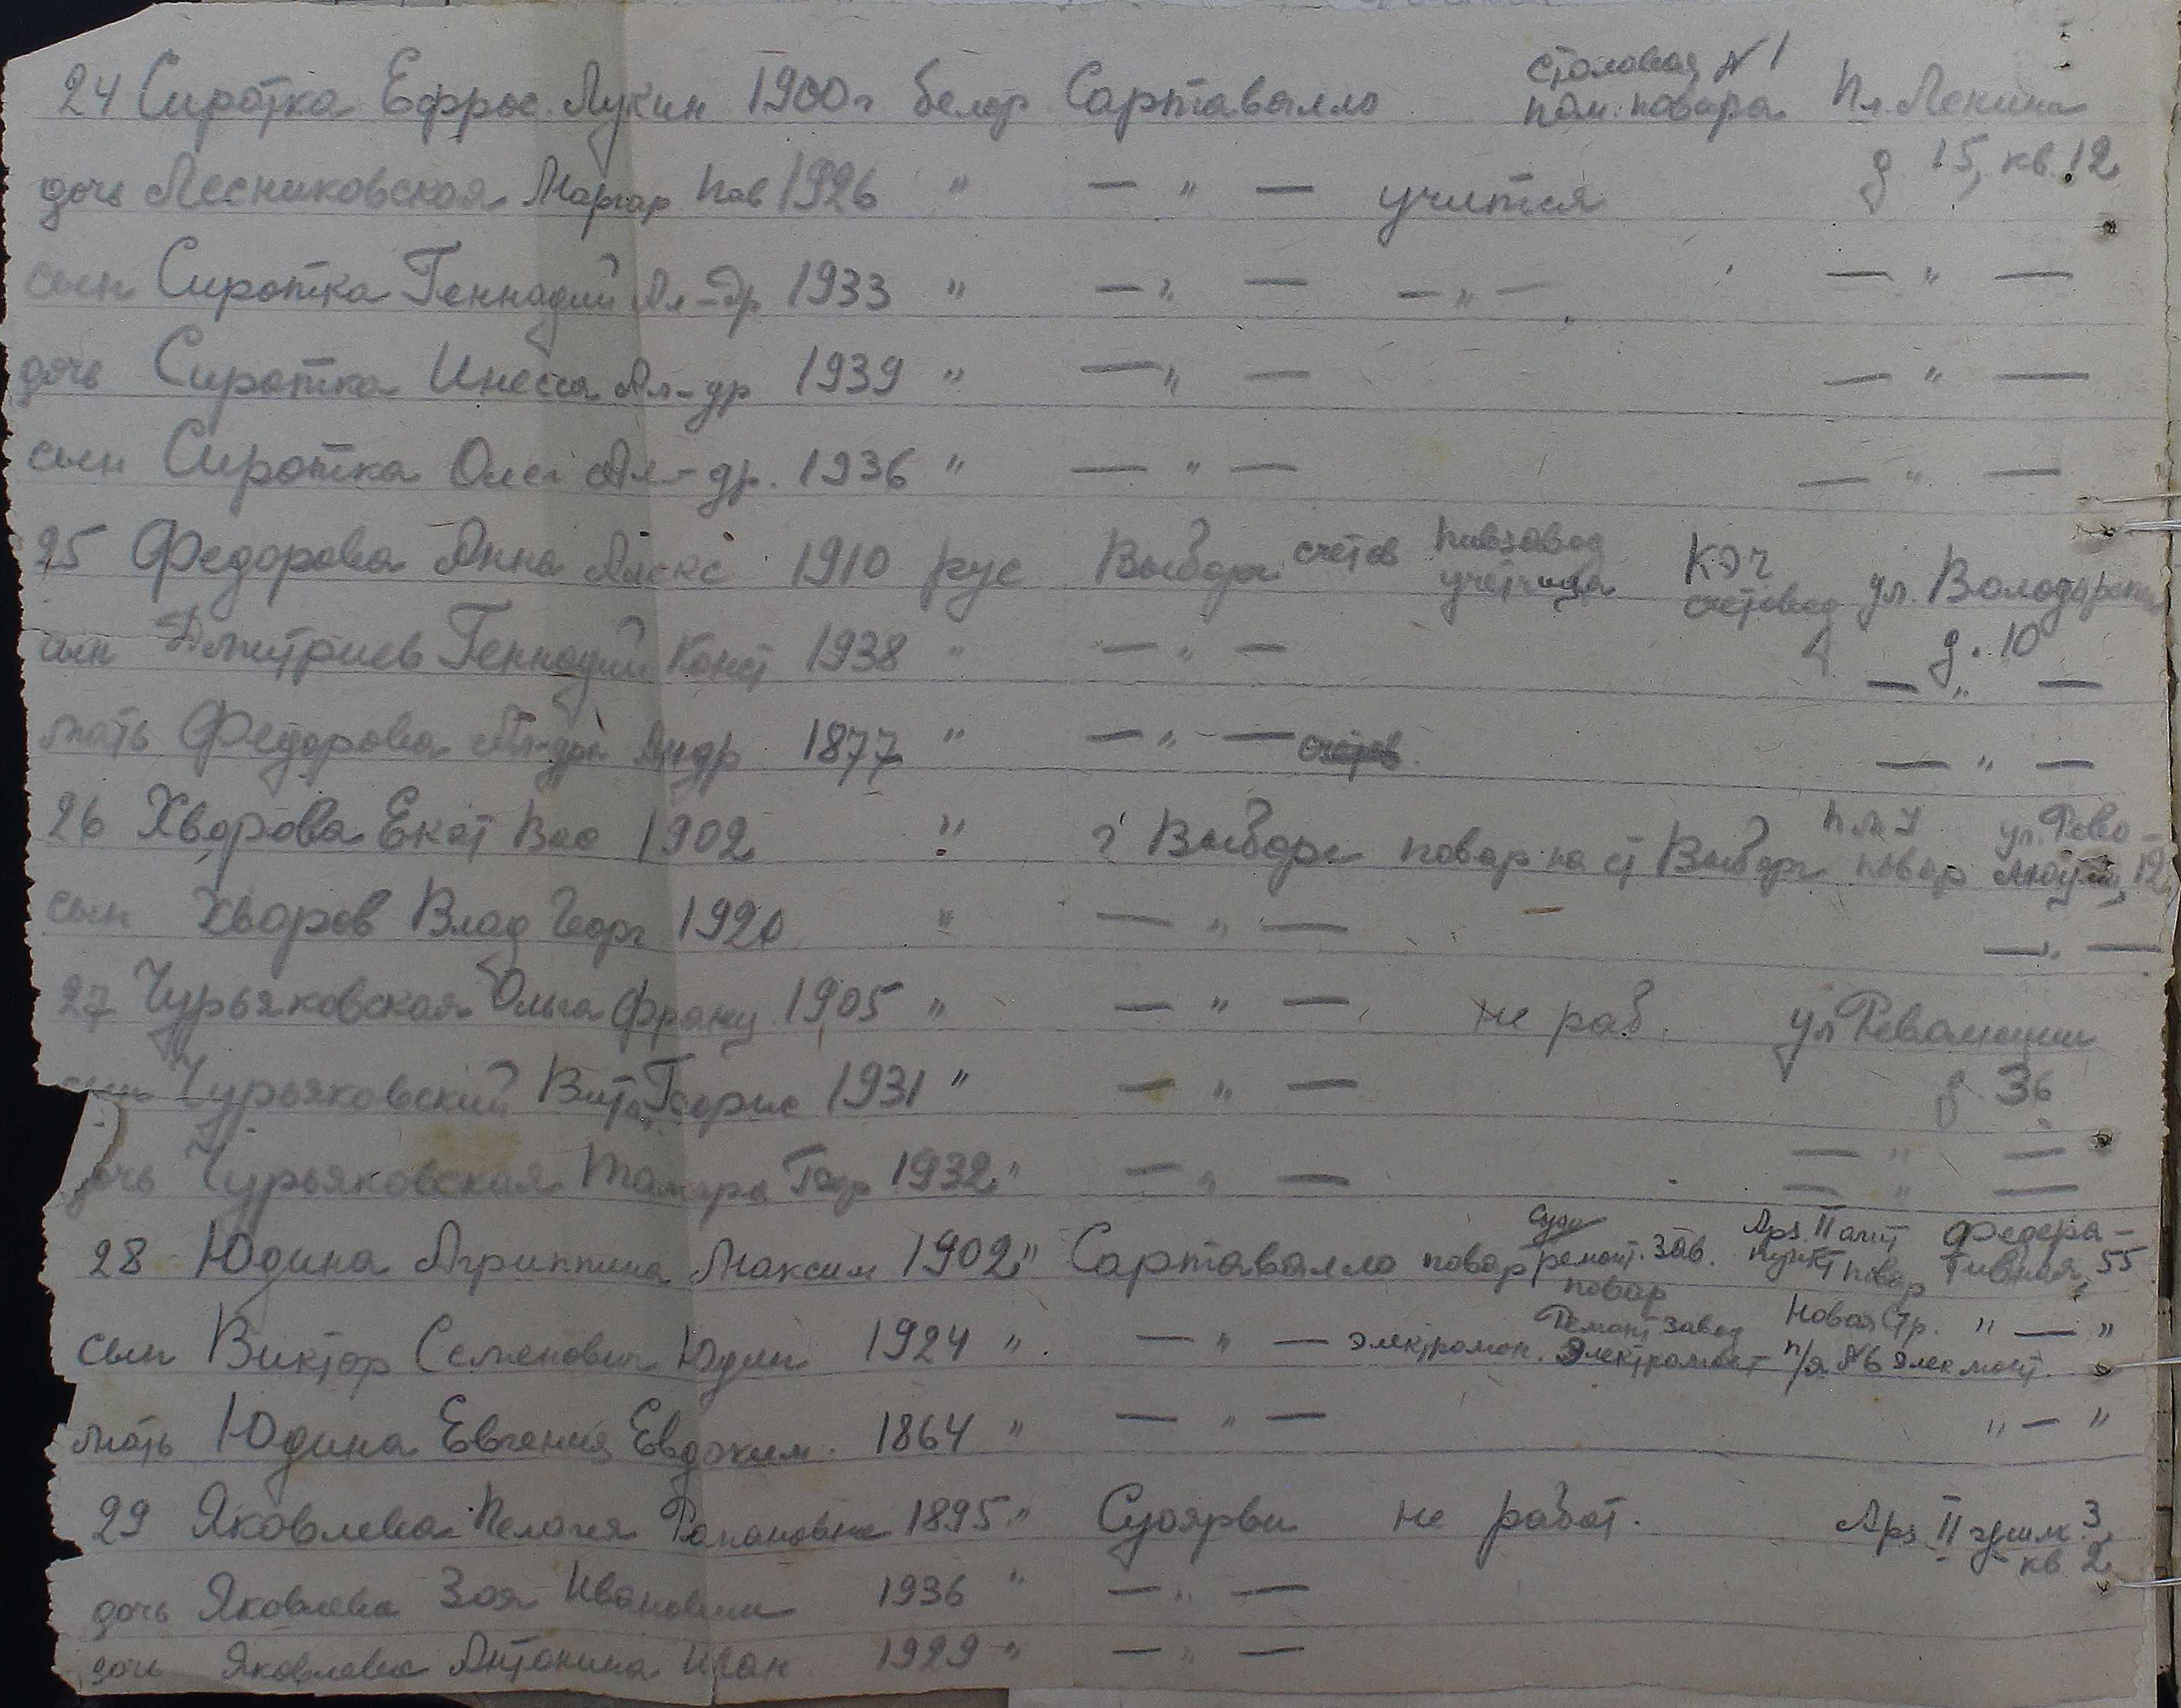 столовая N 1
24 Сиротка Ефрос. Лукин 1900г белор Сартавалло пом. повара Пл Ленина
д 15, кв. 12
дочь Лесниковская Маргар Пав 1926 " — " — учится
сын Сиротка Геннадий Ал-др 1933 " — " — — " — — " —
дочь Сиротка Инесса Ал-др 1939 " — " — — " —
сын Сиротка Олег Ал-др. 1936 " — " — — " —
25 Федорова Анна Алекс 1910 рус Выборг счетов пивзавод учетчица КЭЧ счетовод ул. Володарского
д. 10
сын Дмитриев Геннадий Конст 1938 " — " — — " —
мать Федорова Ал-дра Андр 1877 " — " — счетов. — " —
26 Хворова Екат Вас 1902 " г Выборг повар на ст Выборг повар ул. Рево-
люции, 12
сын Хворов Влад Георг 1920 " — " — — " —
27 Чурьяковская Ольга Франц 1905 " — " — не раб. ул Революции
д. 36
сын Чурьяковский Вит. Георг 1931 " — " — — " —
дочь Чурьяковская Тамара Геор 1932 " — " — — " —
28 Юдина Агриппина Максим 1902 " Сартавалло повар Судо ремонт. зав. повар Арз. II агит пункт повар Федера-
тивная, 55
сын Виктор Семенович Юдин 1924 " — " — электромон. Ремонт завод Электромонт Новая стр. п/я №6 элекмонт. " — "
мать Юдина Евгения Евдоким. 1864 " — " — " — "
29 Яковлева Пелагея Романовна 1895 " Суоярви не работ. Арз. II 3,
кв. 2
дочь Яковлева Зоя Ивановна 1936 " — " —
дочь Яковлева Антонина Иван 1929 " — " —